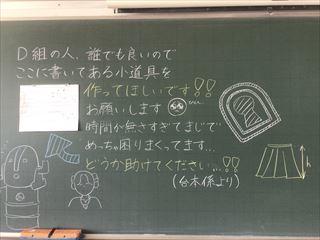 D組の人、誰でも良いので
ここに書いてある小道具を
作ってほしいです!!
お願いします
時間が無さすぎてまじで
めっちゃ困りまくってます…
どうか助けてください…!!
(台本係より)
h